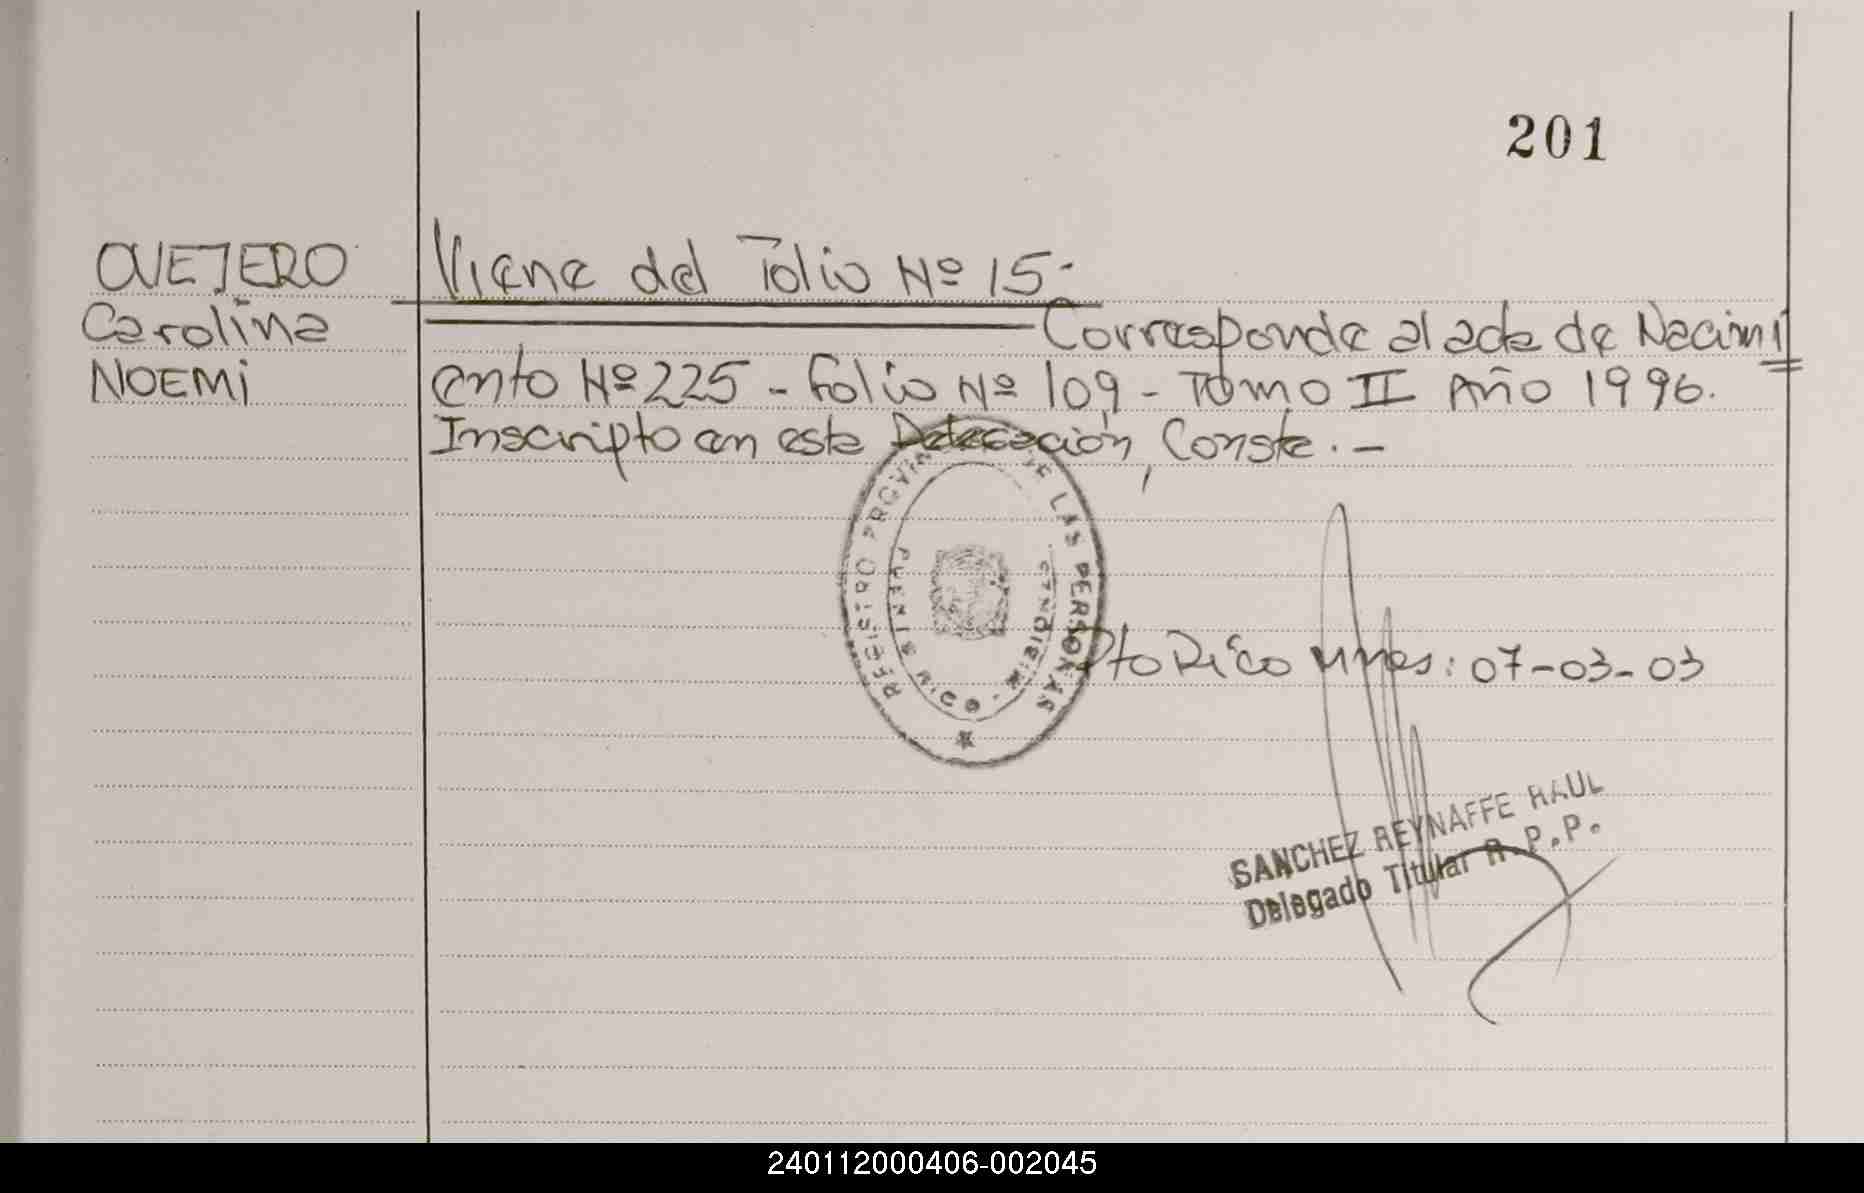 201
OVEJERO
Carolina
NOEMi
Viene del Folio Nº 15-
Corresponde al acta de Nacimi
ento Nº 225 - Folio Nº 109 - Tomo II Año 1996.
Inscripto en esta Delegación, Conste. -
REGISTRO PROVIN DE LAS PERSONAS
MISIONES
Pto Rico Mnes: 07-03-03
SANCHEZ REYNAFFE RAUL
Delegado Titular R.P.P.
240112000406-002045